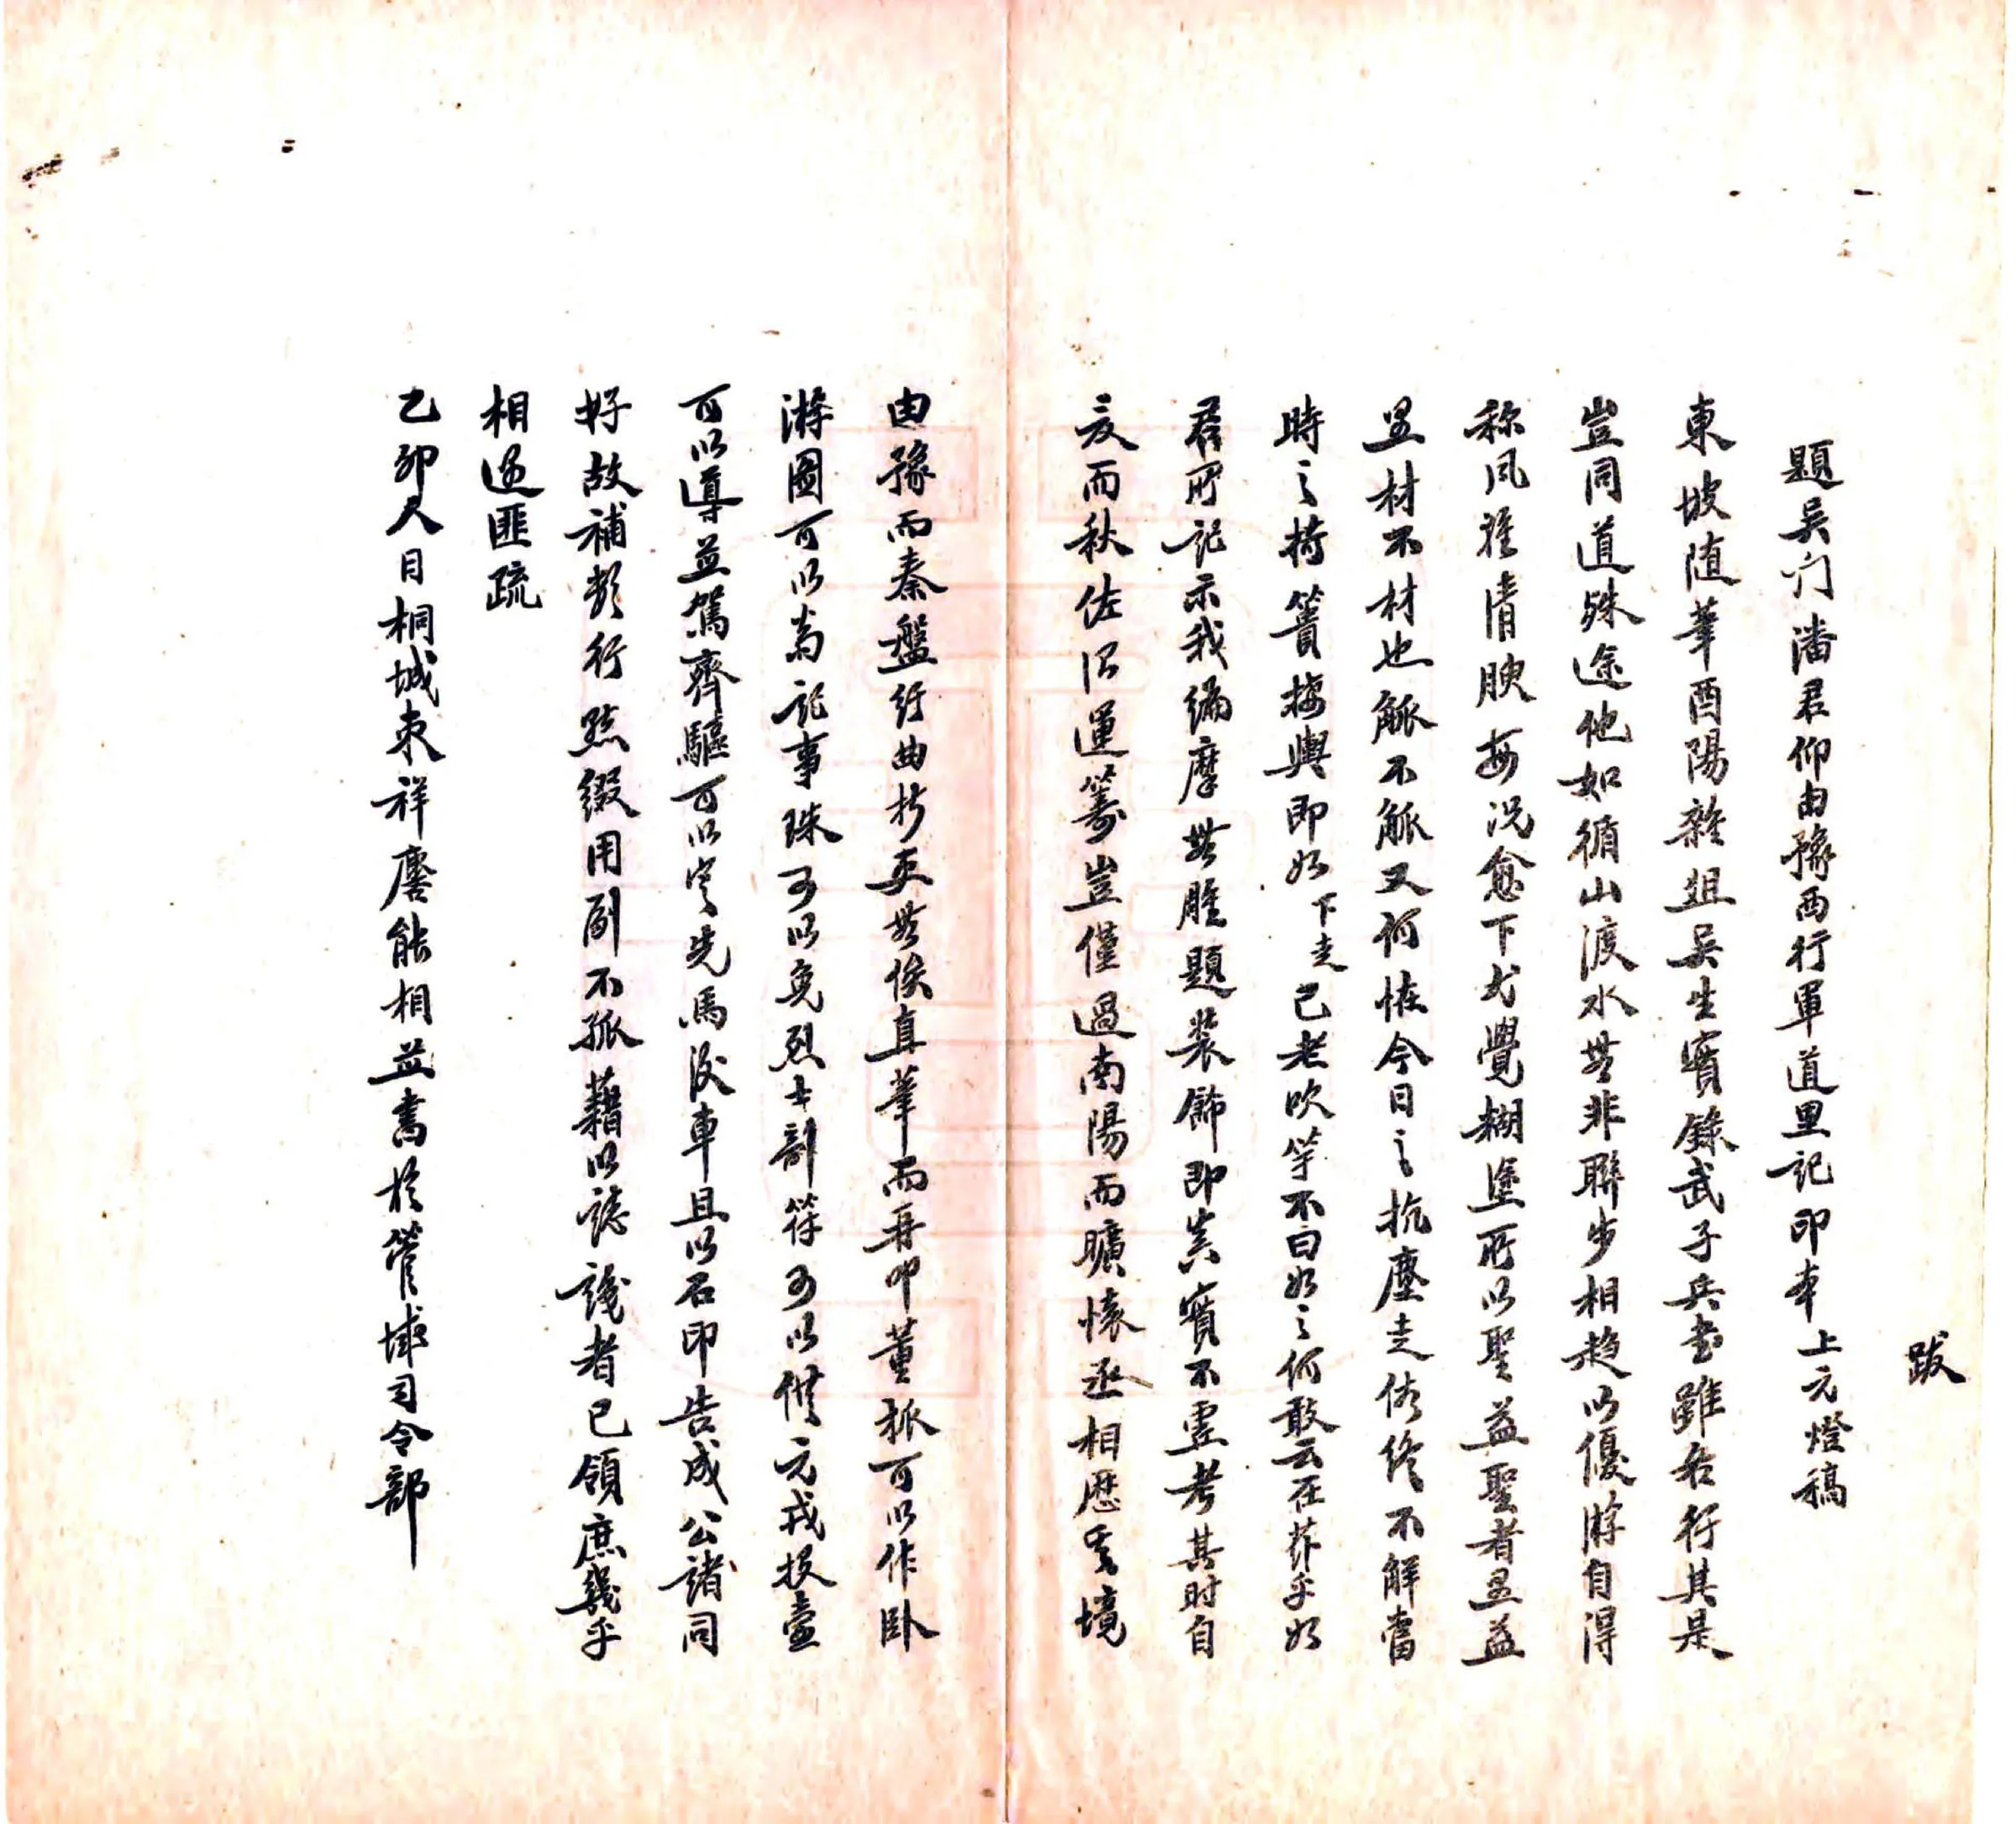 跋
題吳門潘君仰由豫西行軍道里記印本上元燈稿
東坡随筆酉陽雜俎吳生實錄武子兵書雖各行其是
豈同道殊途他如循山渡水無非聯步相趋以優游自得
称风雅情腴每况愈下尤覺糊塗所以聖益聖者愚益
愚材不材也觚不觚又何怪今日之抗塵走俗終不解當
時之掎簀援輿即如下走已老吹竽不曰如之何敢云在莒乎如
君所記示我編摩無勝題裝飾即真實不虛考其时自
夏而秋佐治運籌豈僅過南陽而曠懷丞相歷秦境
由豫而秦盤紆曲折更無俟直筆而再叩董狐可以作卧
游圖可以為記事珠可以免烈士剖符可以供元戎投壶
可以導並駕齊驅可以定先馬後車且以石印告成公諸同
好故補数行點綴用副不孤藉以誌識者已領庶幾乎
相遇匪疏
乙卯人日桐城朱祥麐能相並書於管城司令部